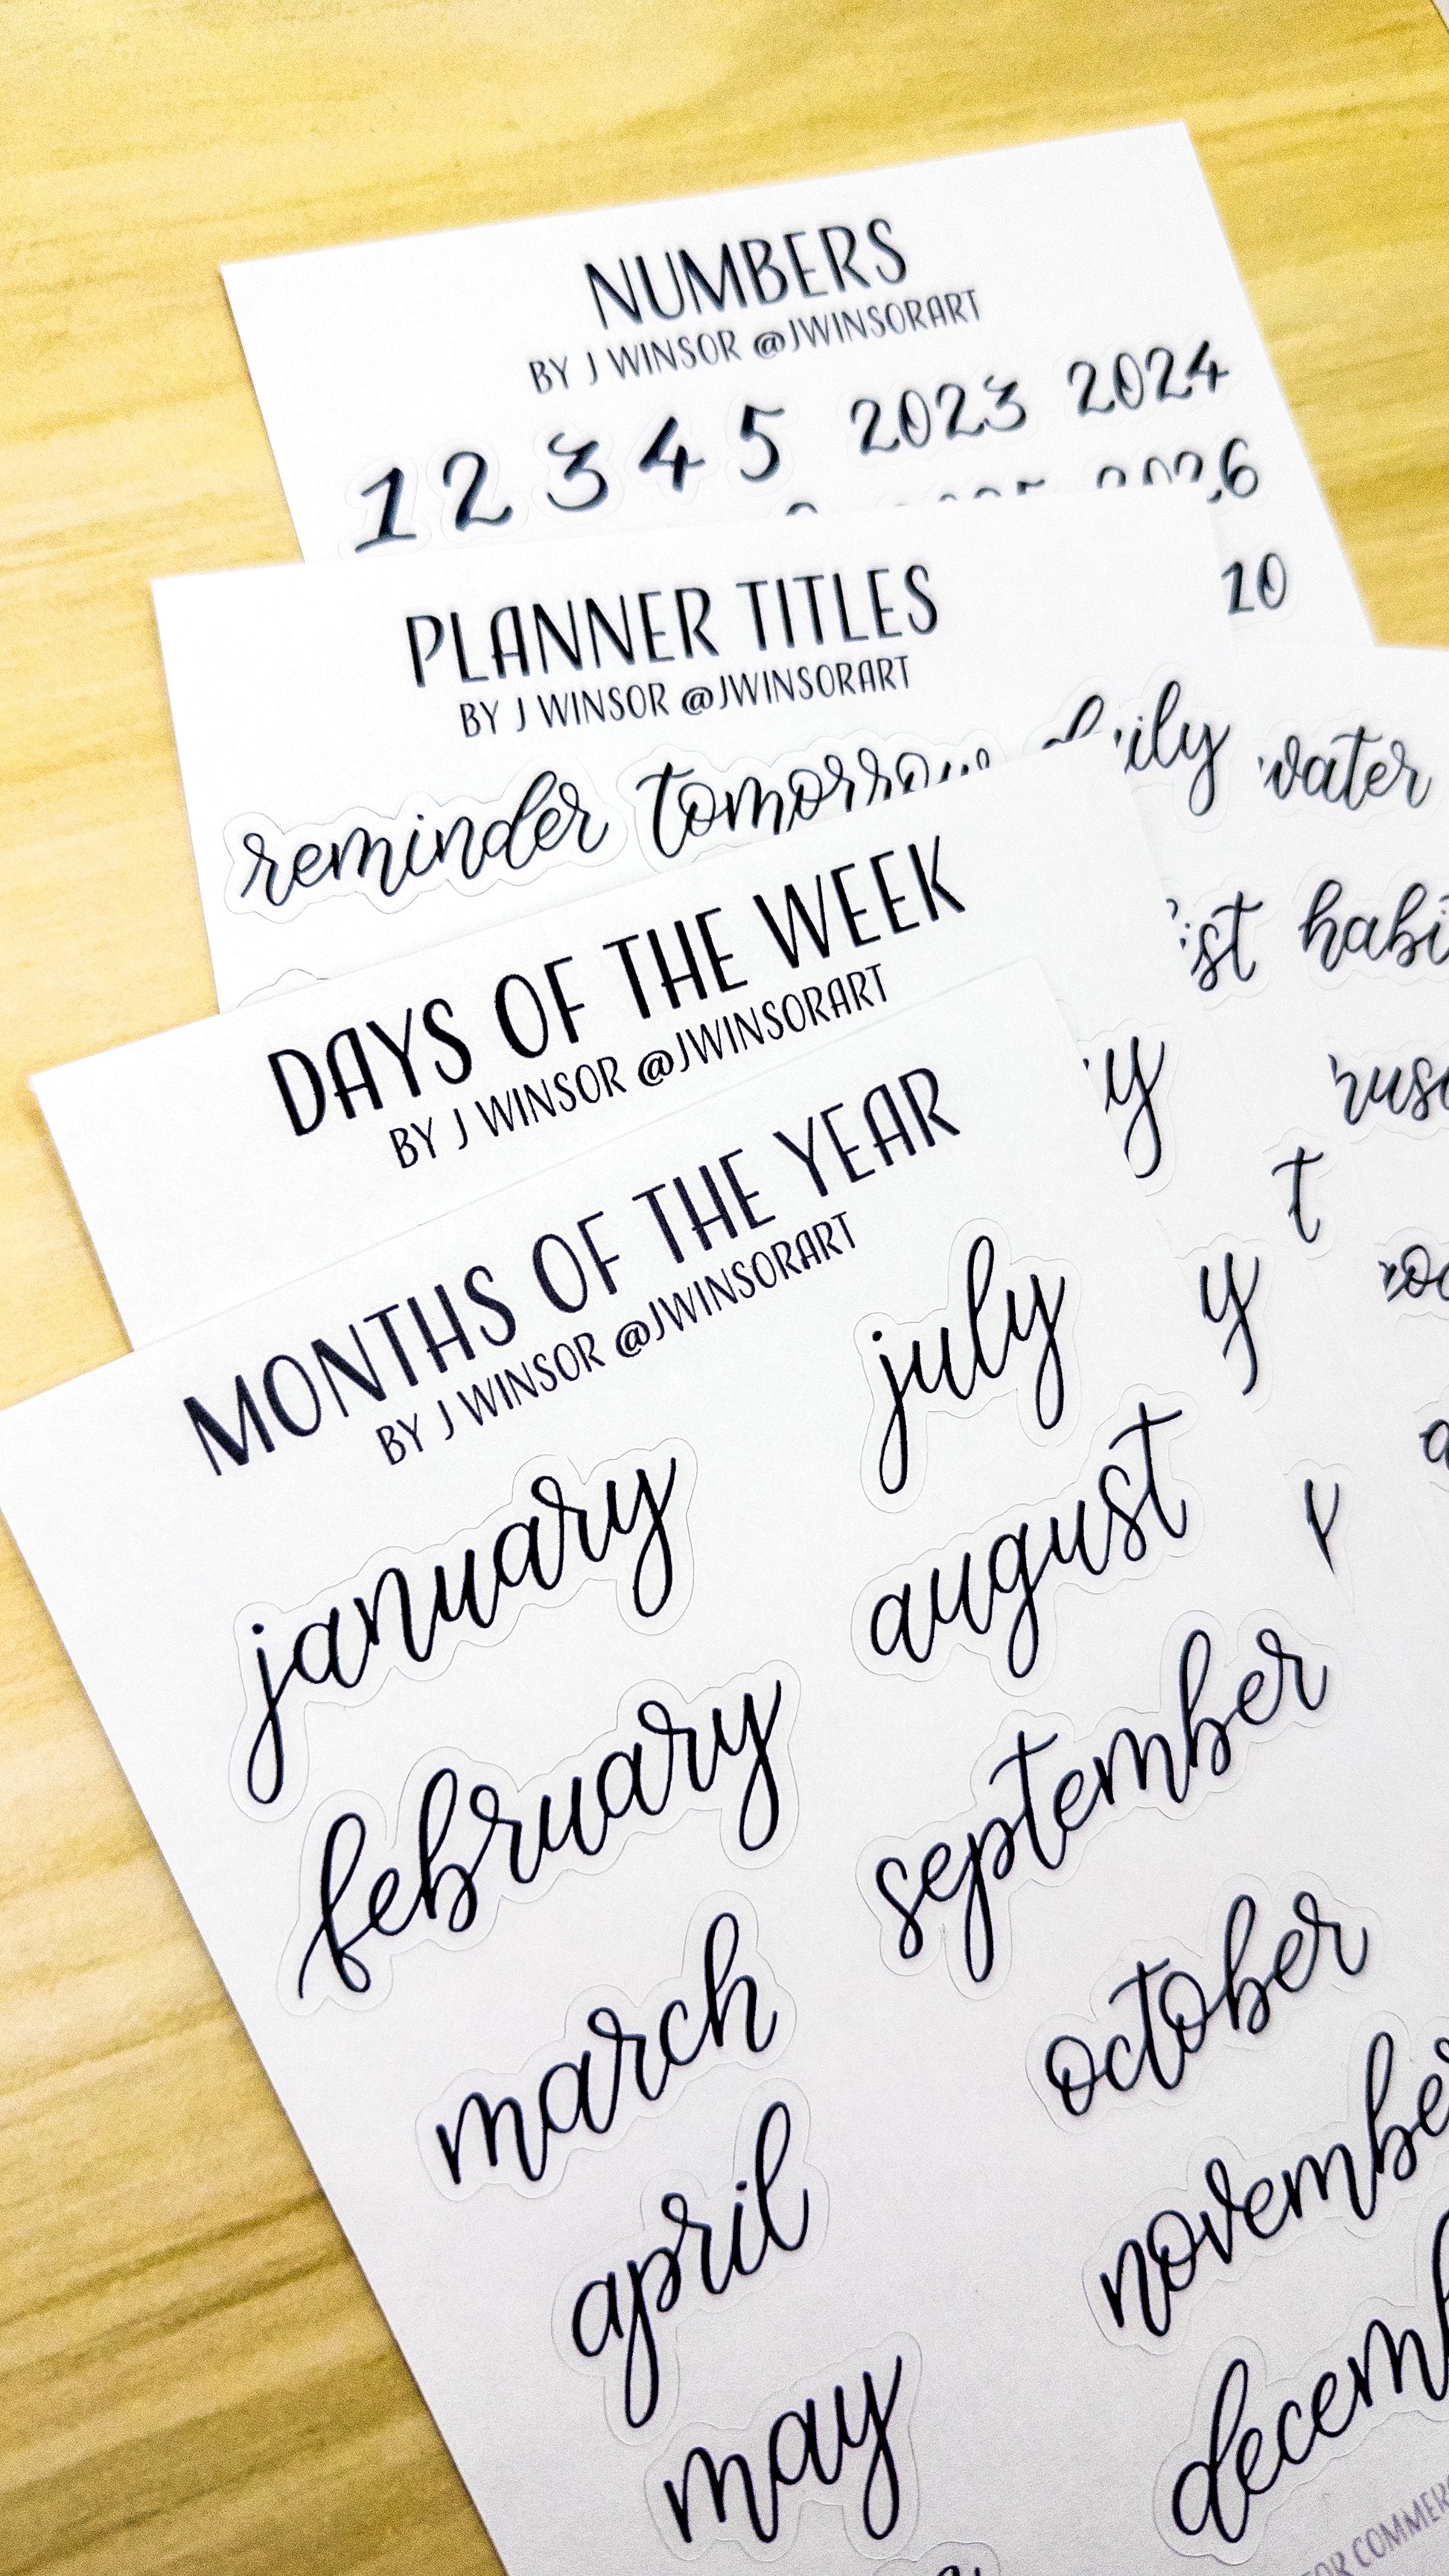 NUMBERS
BY J WINSOR @JWINSORART
1 2 3 4 5 2023 2024
2026
10
PLANNER TITLES
BY J WINSOR @JWINSORART
reminder tomorrow daily water
habi
DAYS OF THE WEEK
BY J WINSOR @JWINSORART
MONTHS OF THE YEAR
BY J WINSOR @JWINSORART
january
february
march
april
may
july
august
september
october
november
decemb